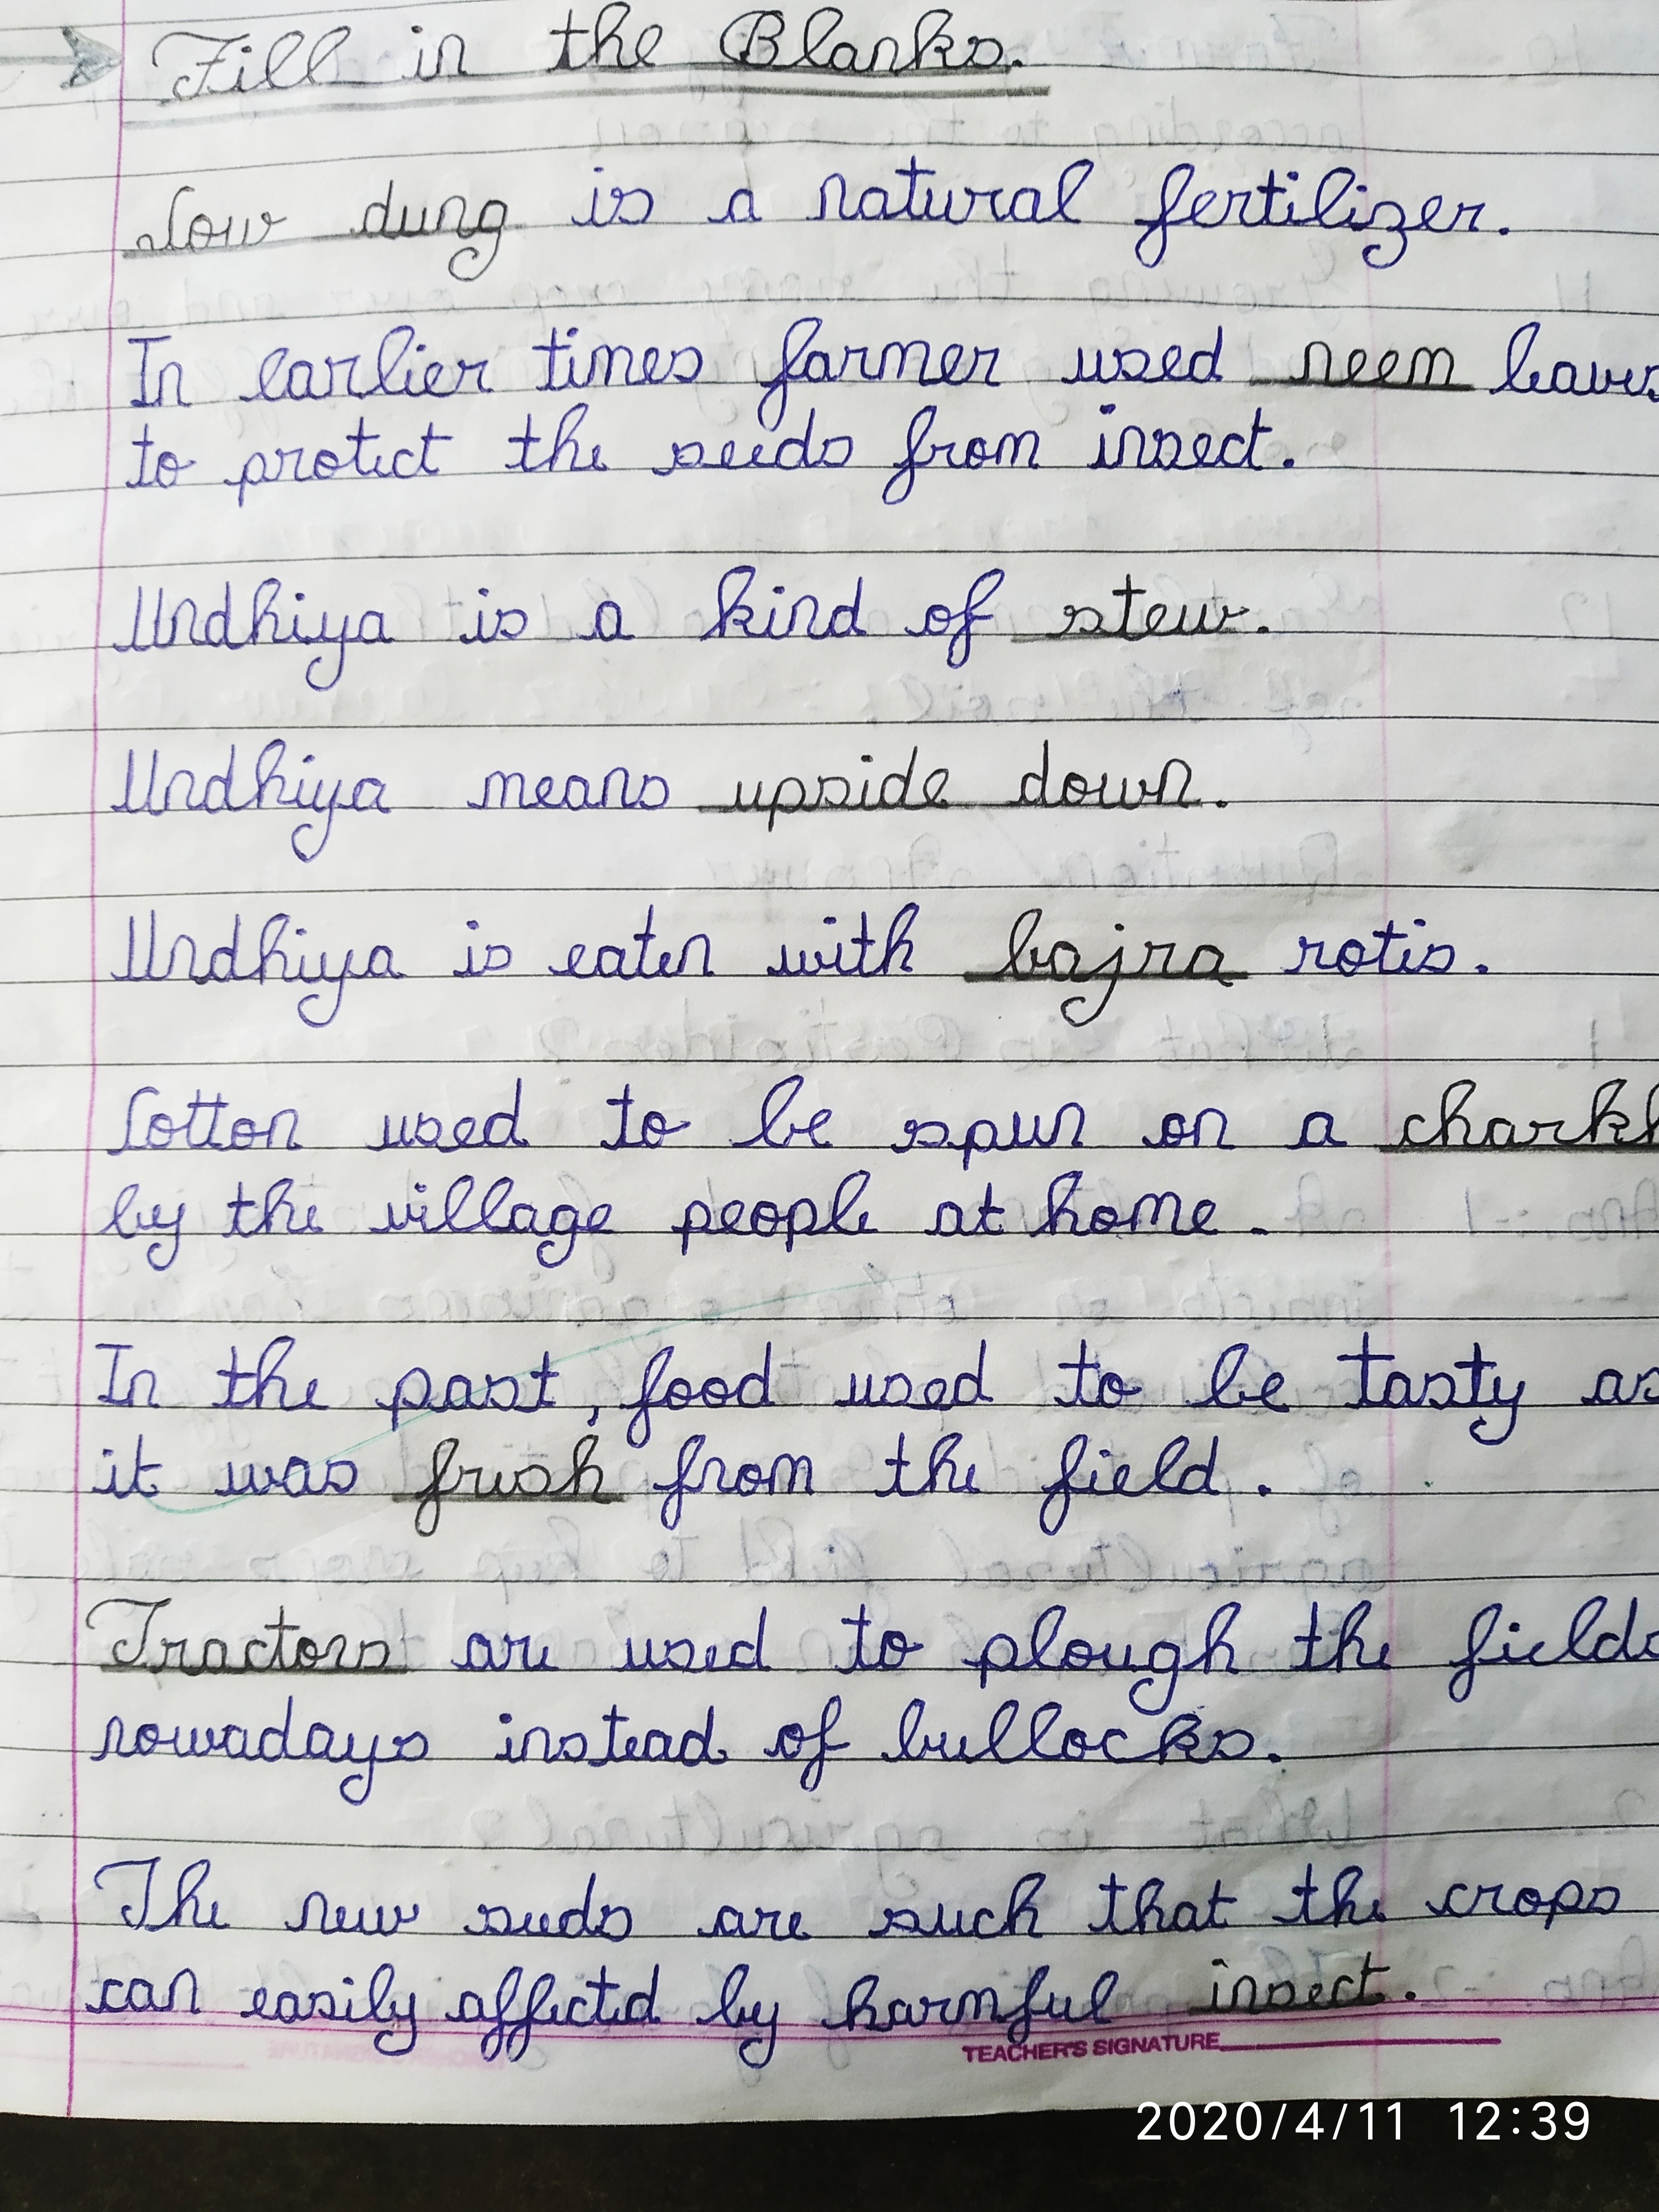 Fill in the Blanks.
Cow dung is a natural fertilizer.
In earlier times farmer used neem leaves
to protect the seeds from insect.
Undhiya is a kind of stew.
Undhiya means upside down.
Undhiya is eaten with bajra rotis.
Cotton used to be spun on a charkh
by the village people at home.
In the past, food used to be tasty as
it was fresh from the field.
Tractors are used to plough the fields
nowadays instead of bullocks.
The new seeds are such that the crops
can easily affected by harmful insect.
TEACHER'S SIGNATURE
2020/4/11 12:39